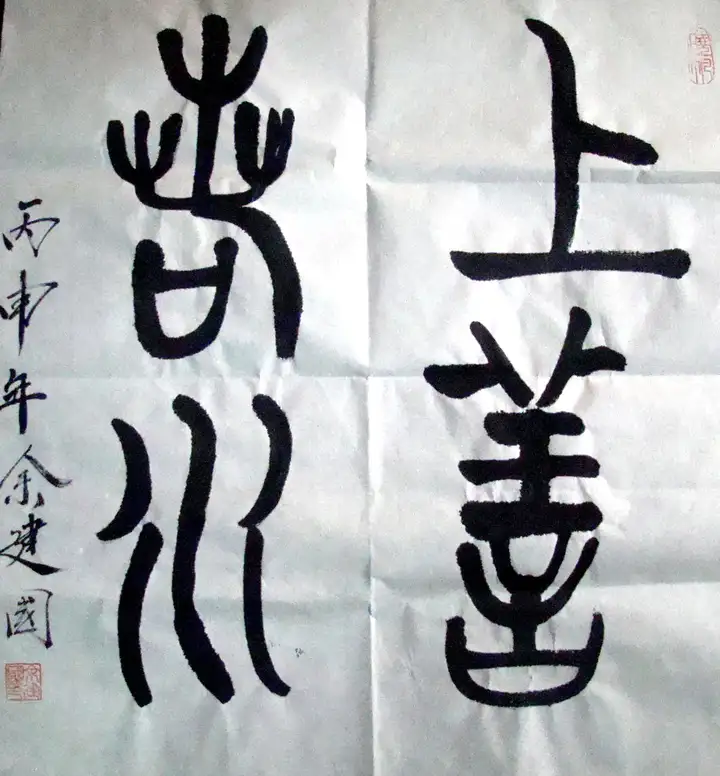 上善
若水
丙申年余建國